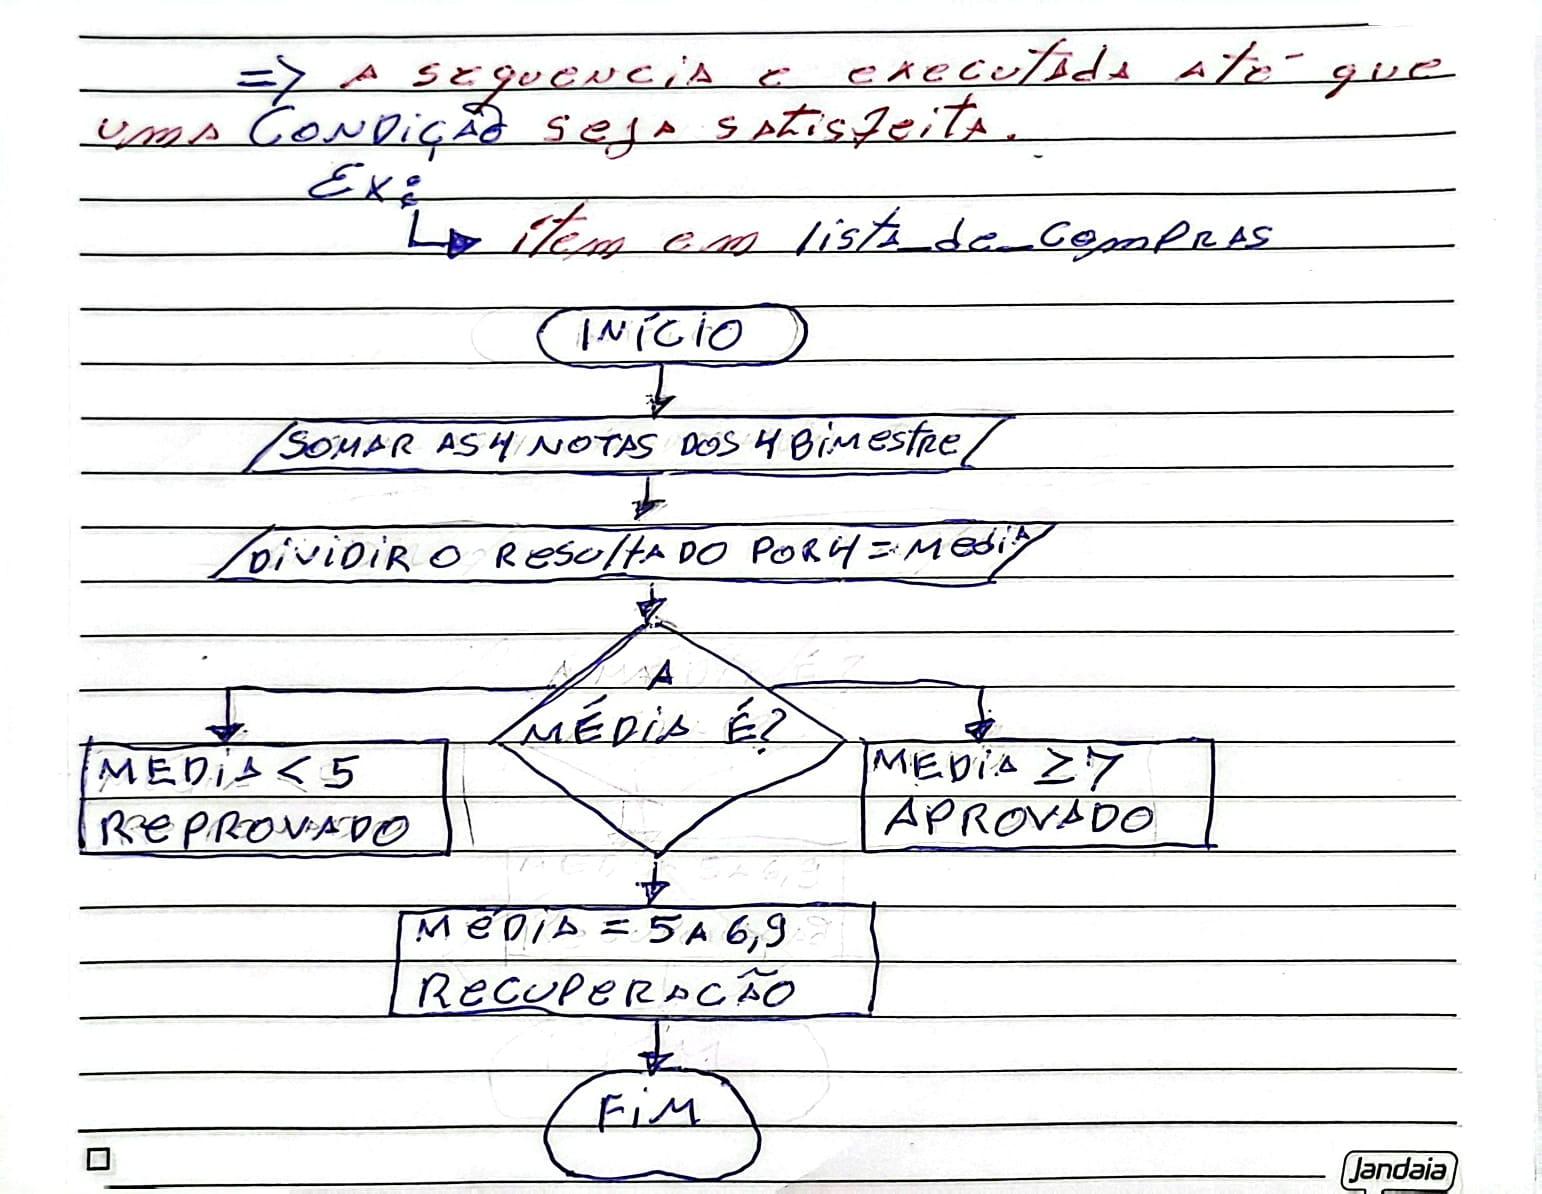 => A sequencia e executada até que
uma Condição seja satisfeita.
Ex:
item em lista_de_compras
INÍCIO
SOMAR AS 4 NOTAS DOS 4 BIMESTRE
DIVIDIR O RESULTADO POR 4 = MEDIA
A
MÉDIA É?
MEDIA < 5
REPROVADO
MEDIA ≥ 7
APROVADO
MÉDIA = 5 A 6,9
RECUPERACÃO
FIM
Jandaia